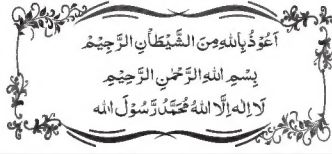 اَعُوْذُ بِاللهِ مِنَ الشَّيْطٰانِ الرَّجِيْمِ
بِسْمِ اللهِ الرَّحْمٰنِ الرَّحِيْمِ
لَا اِلٰهَ اِلَّا اللهُ مُحَمَّدٌ رَّسُوْلُ اللهِ